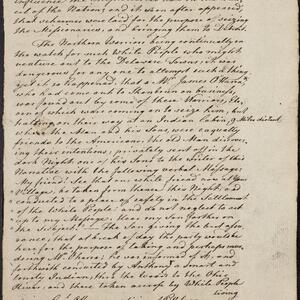 out of the Nation; and it soon after appeared,
that schemes were laid for the purpose of seizing
the Missionaries, and bringing them to Detroit.
The Northern Warriors being continually on
the watch for such White People who might
venture out to the Delaware Towns, it was
dangerous for any one to attempt such a thing,
yet it so happened, that a Mr. James O'Hara
who had come out to Shonbrun on business,
was found out by some of these Warriors,
one of which was coming to seize him, but
halting on their way at an Indian Cabin, 9 Miles distant
where the Man and his Sons were equally
friends to the Americans. The old Man discover-
ing their intentions, privately sent off in the
dark Night one of his Sons to the writer of this
Narrative with the following verbal Message:
My friend! See whose white friend now at your
Village, be taken from thence this Night, and
conducted to a place of safety in the Settlement
of the White People and do not neglect to act
up to my Message. Hear my Son further on
the Subject. The Son giving the best assu-
rance, that at break of day the party would be
here for the purpose of taking and perhaps mur-
dering Mr. O'hara; he was informed of it, and
forthwith conducted by Anthony a smart and
trusty Indian, thro' the Woods to the Ohio
River; and there taken across by White People
living